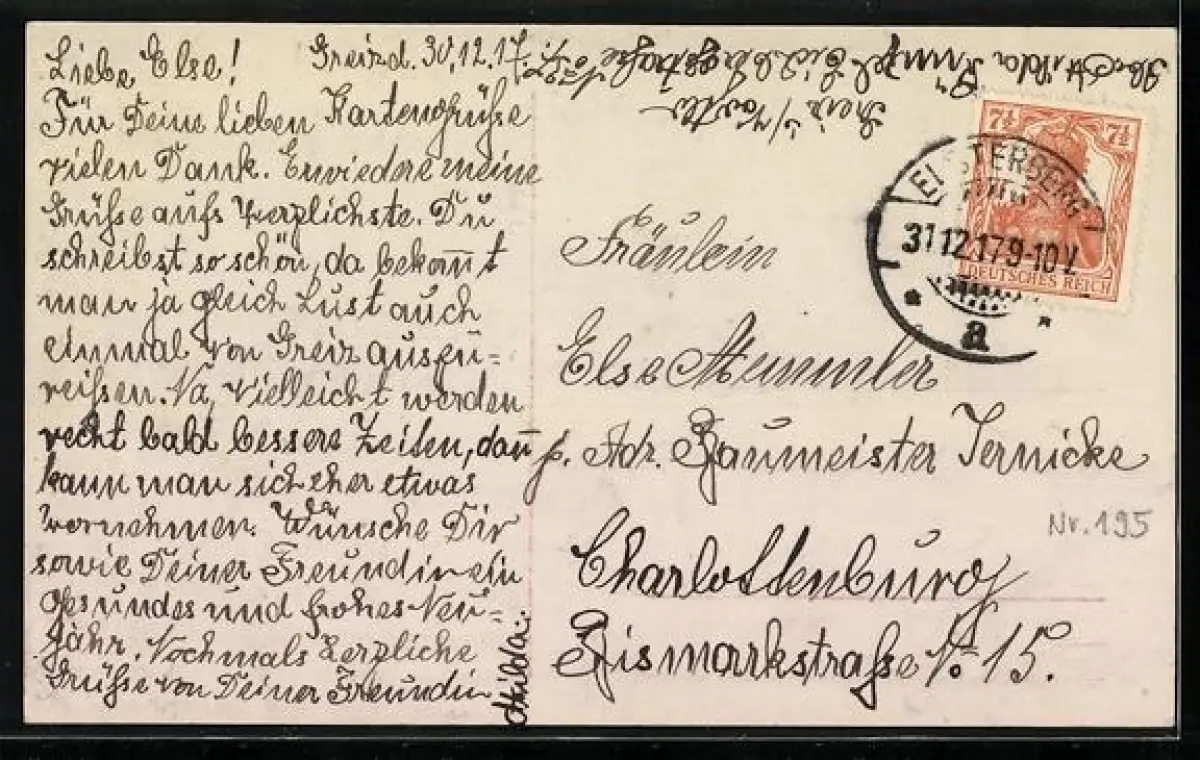 Liebe Else! Greiz d. 30.12.17.
Für Deine lieben Kartengrüße
vielen Dank. Erwiedere meine
Grüße aufs Herzlichste. Du
schreibst so schön, da bekom̅t
man ja gleich Lust auch
einmal von Greiz auszu=
reißen. Na, vielleicht werden
recht bald bessere Zeiten, dan̅
kann man sich eher etwas
vornehmen. Wünsche Dir
sowie Deiner Freundin ein
gesundes und frohes Neu=
jahr. Nochmals herzliche
Grüße von Deiner Freundin
Hilda.
Hilda
Greiz i/Vogtl.
DEUTSCHES REICH
7½ 7½
ELSTERBERG
31.12.17.9-10V.
a
Fräulein
Else Memmler
p. Adr. Baumeister Jernicke
Nr. 195
Charlottenburg
Bismarkstraße No 15.